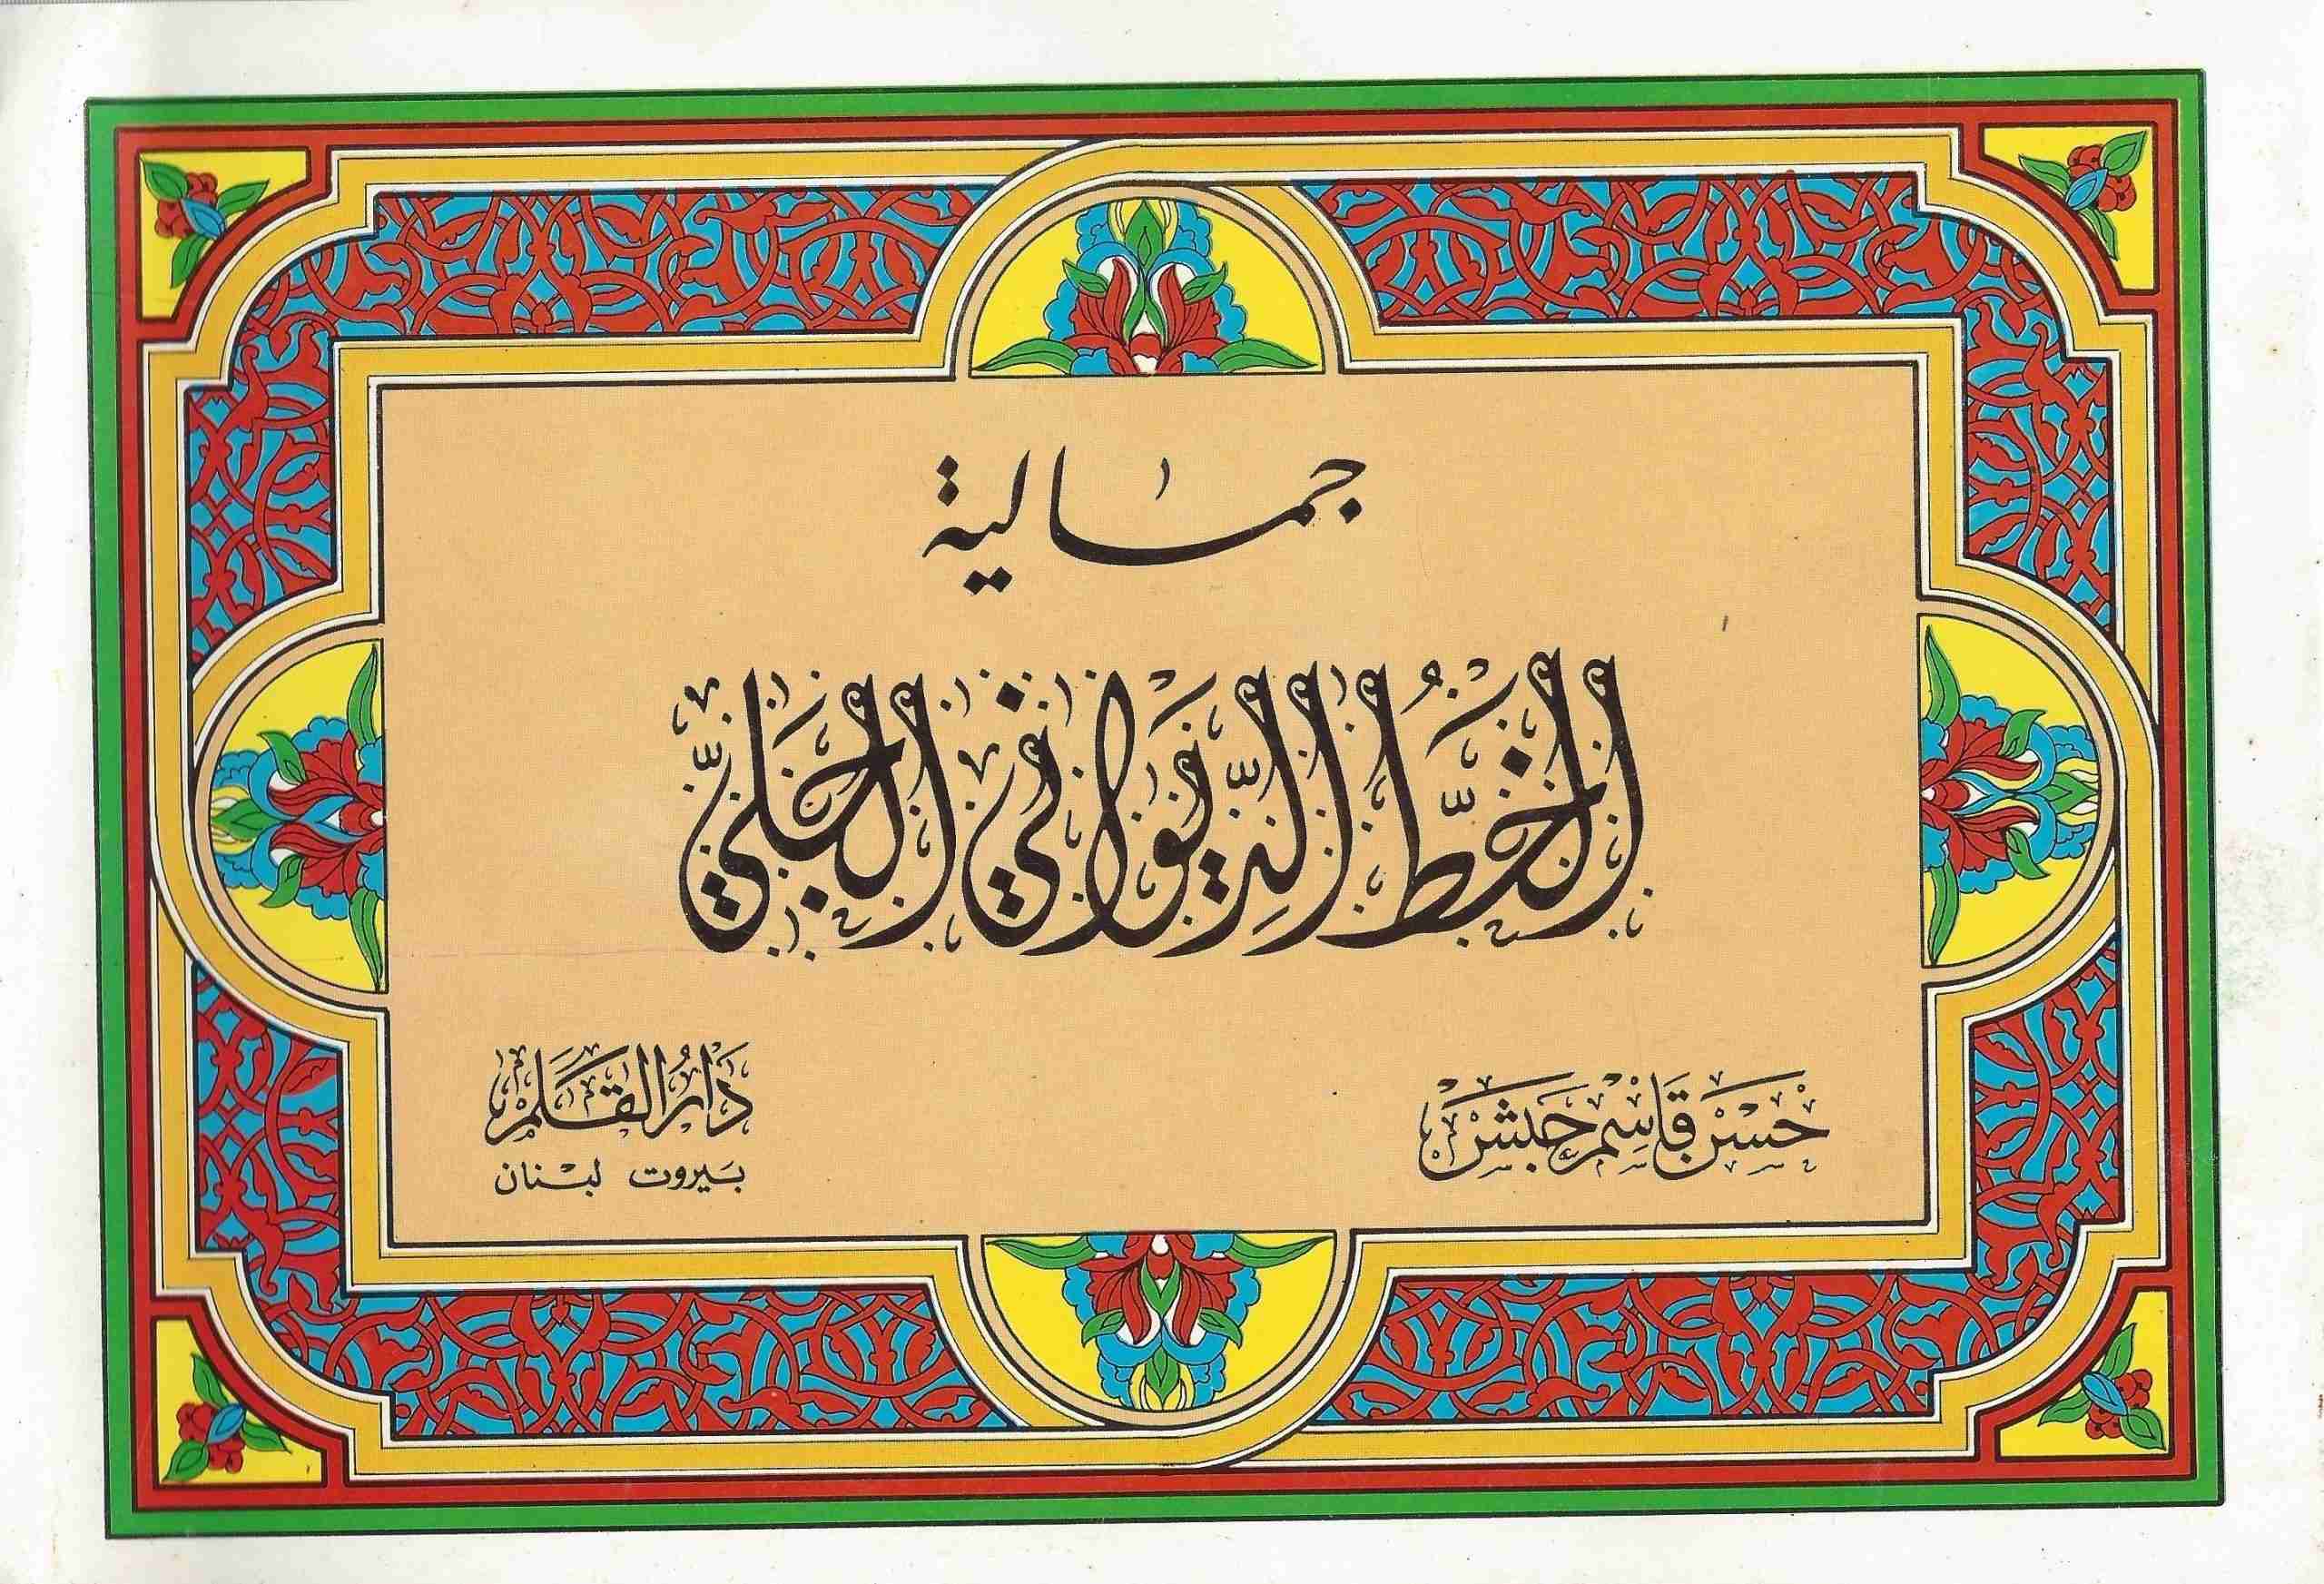 جمالية
الخطّ الدّيواني الجليّ
حسن قاسم حبش
دار القلم
بيروت لبنان